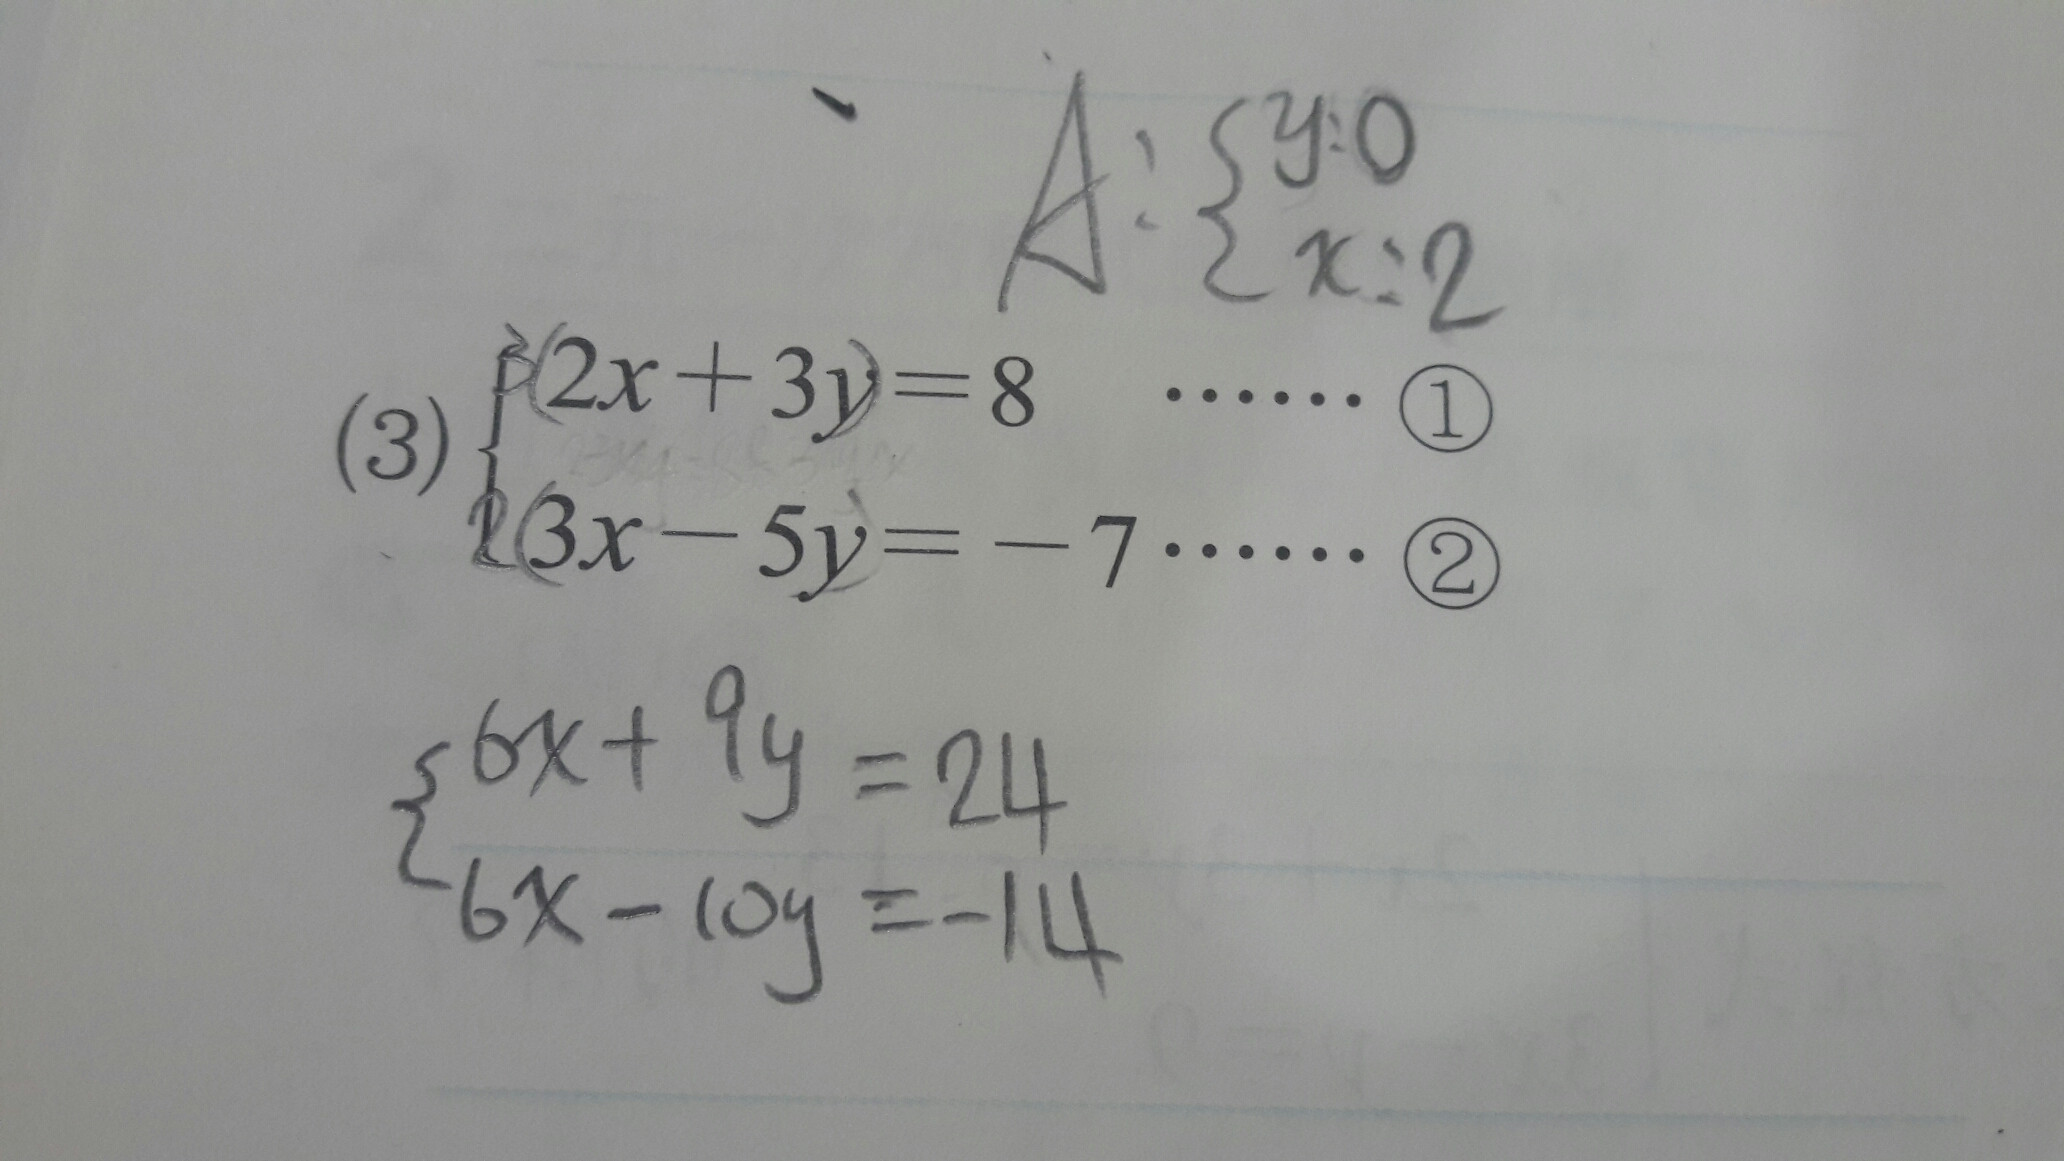 A: { y:0
x:2
(3) { 3(2x+3y)=8 ······ ①
2(3x-5y)=-7 ······ ②
{ 6x+9y=24
6x-10y=-14